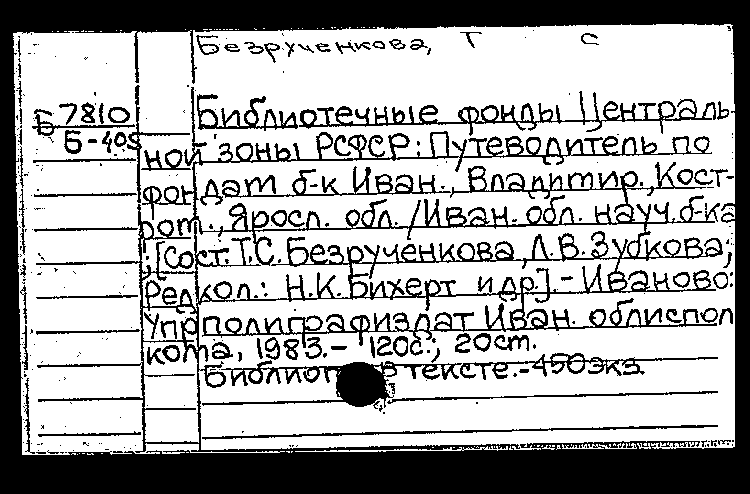 Безрученкова, Т С
Б 7810
Б-405
Библиотечные фонды Централь-
ной зоны РСФСР: Путеводитель по
фондам б-к Иван., Владимир., Кост-
ром., Яросл. обл. /Иван. обл. науч. б-ка
; [Сост. Т.С. Безрученкова, Л.В. Зубкова;
Редкол.: Н.К. Бихерт и др.]. - Иваново:
Упрполиграфиздат Иван. облиспол
кома, 1983. - 120с.; 20см.
Библиогр в тексте. - 450экз.